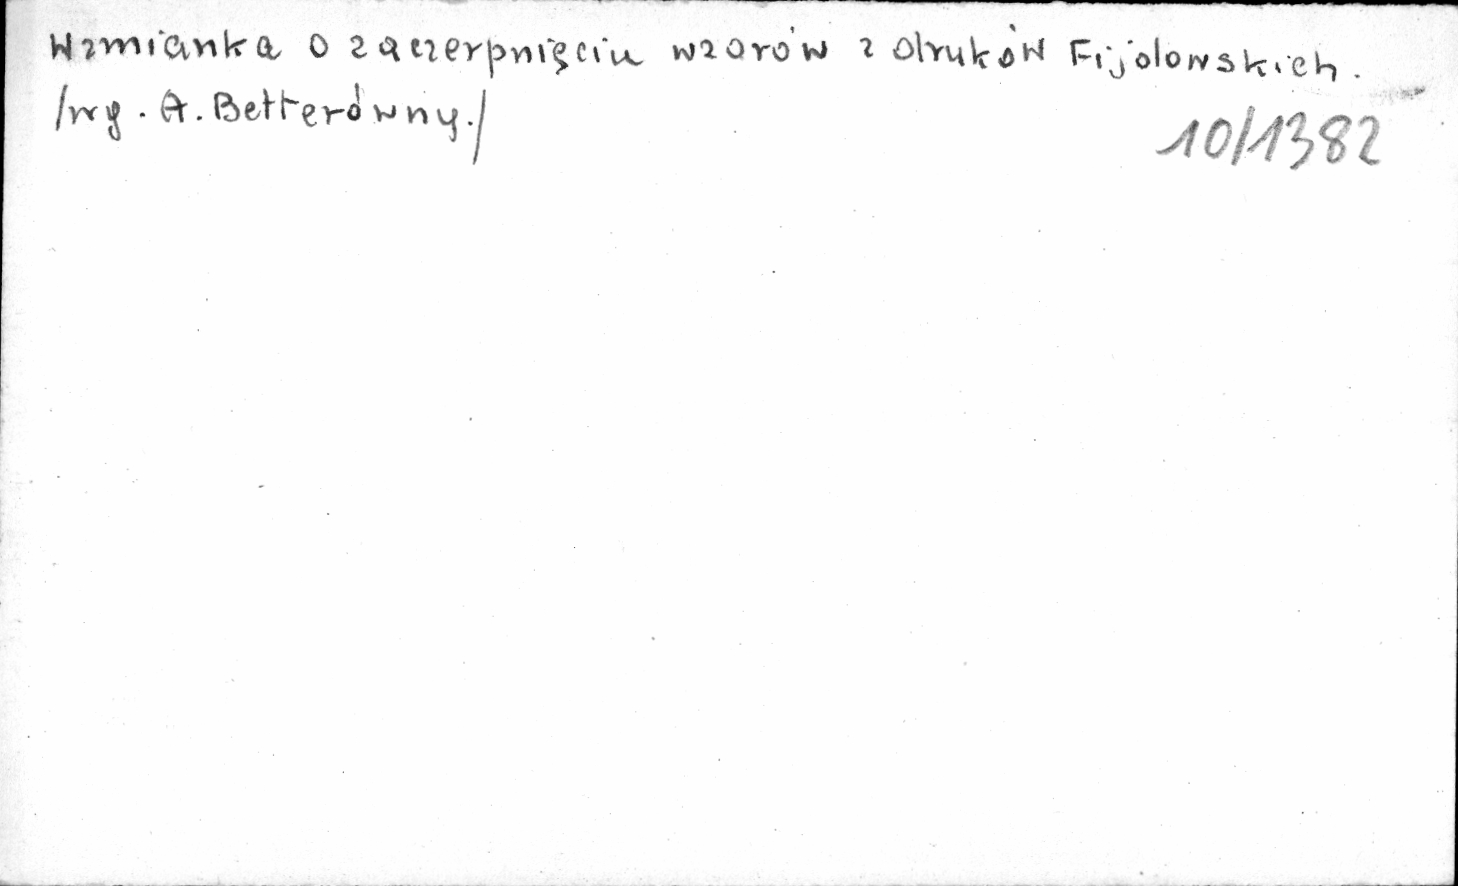 Wzmianka o zaczerpnięciu wzorów z druków Fijolowskich.
/wg. A. Betterówny./
10/1382